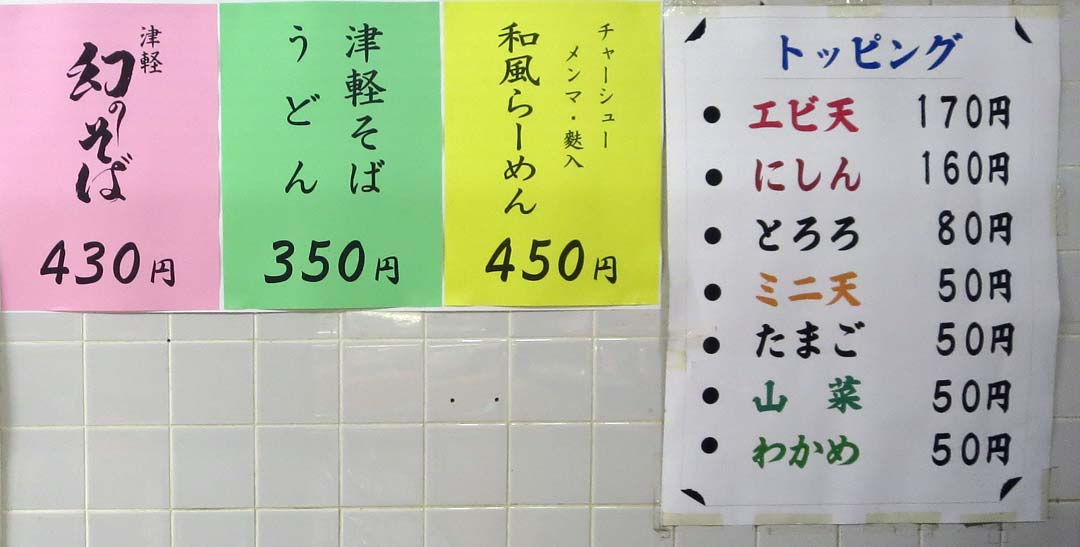 津軽
幻のそば
430円
津軽そば
うどん
350円
チャーシュー
メンマ・麩入
和風らーめん
450円
トッピング
● エビ天 170円
● にしん 160円
● とろろ 80円
● ミニ天 50円
● たまご 50円
● 山菜 50円
● わかめ 50円